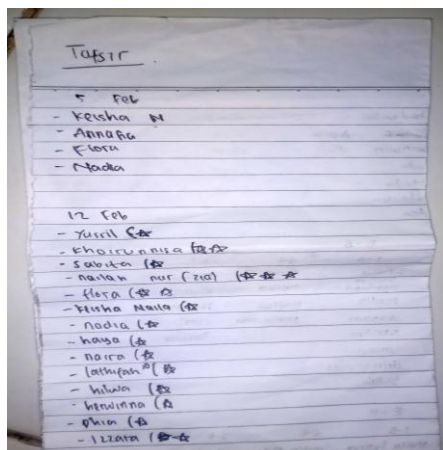 Tafsir
5 Feb
- Keisha N
- Annafia
- Flora
- Nadia
12 Feb
- Yusril (☆
- Khoirunnisa (☆☆
- Sabita (☆
- nailah nur (zia) (☆ ☆ ☆
- flora (☆ ☆
- Keisha Naila (☆
- nadia (☆
- haya (☆
- naira (☆
- lathifah (☆
- hilwa (☆
- herwinna (☆
- (☆
- Izzara (☆☆